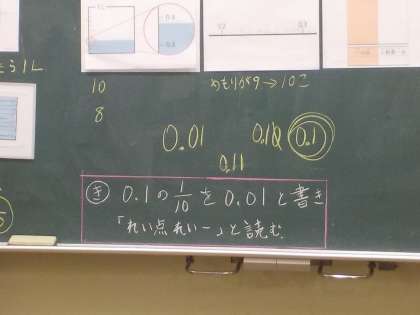 1L
10
めもりが9→10こ
8
0.01
0.10
0.1
0.11
き 0.1の1/10を0.01と書き
「れい点れいー」と読む